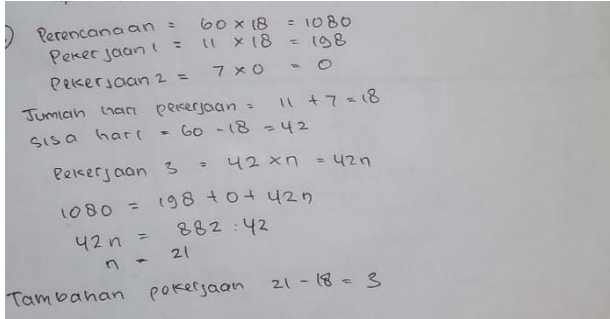 Perencanaan = 60 × 18 = 1080
Pekerjaan 1 = 11 × 18 = 198
Pekerjaan 2 = 7 × 0 = 0
Jumlah hari pekerjaan = 11 + 7 = 18
Sisa hari = 60 - 18 = 42
Pekerjaan 3 = 42 × n = 42n
1080 = 198 + 0 + 42n
42n = 882 : 42
n = 21
Tambahan pekerjaan 21 - 18 = 3